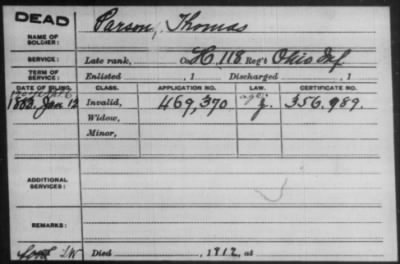 DEAD
NAME OF SOLDIER: Parson, Thomas
SERVICE: Late rank, Co. H, 118 Reg't Ohio Inf
TERM OF SERVICE: Enlisted , 1 Discharged , 1
DATE OF FILING. CLASS. APPLICATION NO. LAW. CERTIFICATE NO.
1883. Jan 12 Invalid, 469,370 356,989.
Widow,
Minor,
ADDITIONAL SERVICES:
REMARKS:
Died , 1912, at